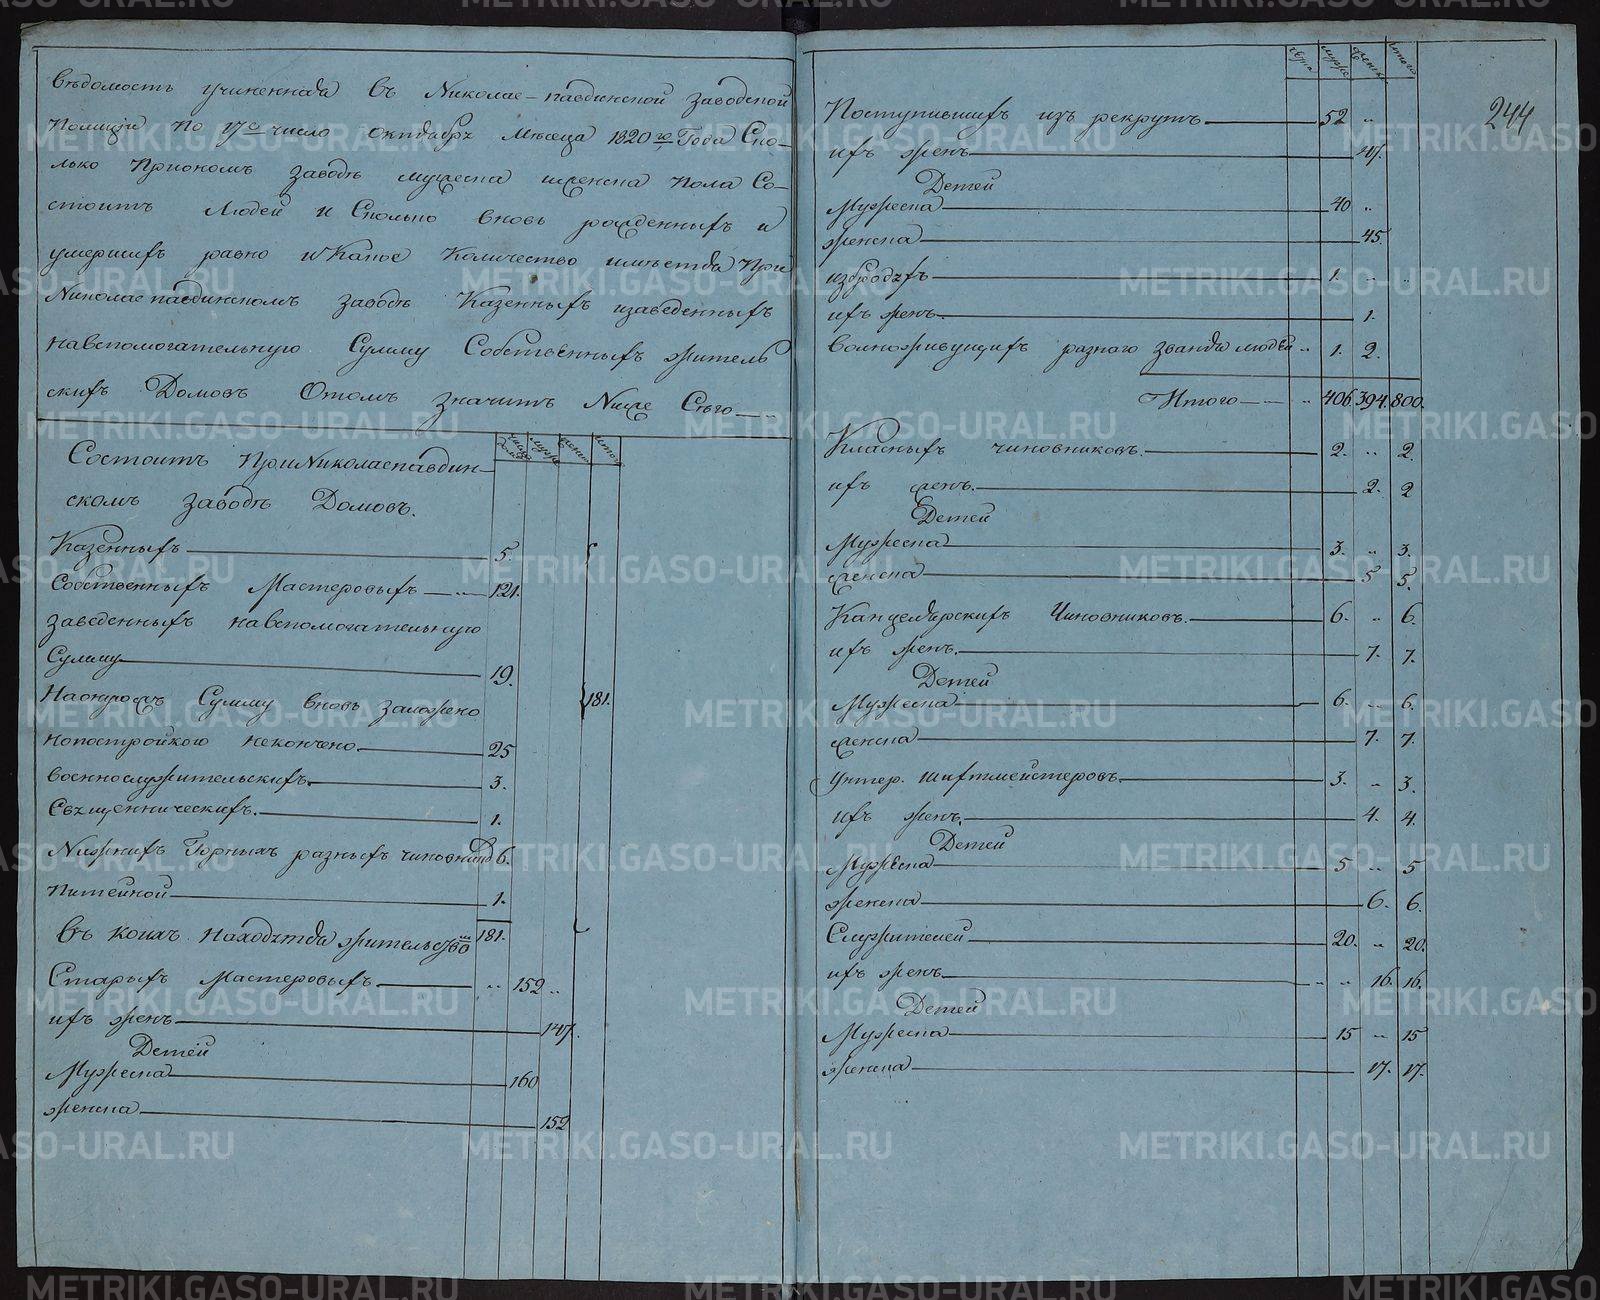 Ведомость учиненная въ Николае-павдинской заводской
Полиции по 17е число октября Месяца 1820го Года Ско-
лько При ономъ заводе мужеска и женска пола Со-
стоитъ Людей и Сколько вновь рожденныхъ и
умершихъ равно и Какое Количество имеется При
Николаепавдинскомъ заводе Казенныхъ и заведенныхъ
на вспомогательную Сумму Собственныхъ житель
скихъ Домовъ Отомъ значитъ Ниже Сего
число домовъ муже женс итого
Состоитъ При Николаепавдин-
скомъ заводе Домовъ.
Казенныхъ 5.
Собственныхъ Мастеровыхъ 121.
заведенныхъ на вспомогательную
Сумму 19.
На оную жъ Сумму вновь заложено
но постройкою не кончено 25
военнослужительскихъ 3.
Священническихъ 1.
Нижнихъ Горныхъ разныхъ чиновниковъ 6.
Питейной 1.
181.
181.
Въ коихъ находятся жительство
Старыхъ Мастеровыхъ „ 152 „
ихъ женъ 147.
Детей
Мужеска 160
женска 152
муже женс итого
244
Поступившихъ изъ рекрутъ 52 „
ихъ женъ 47.
Детей
Мужеска 40 „
женска 45.
1. „
ихъ женъ 1.
вольноживущихъ разнаго звания людей „ 1. 2.
Итого „ 406. 394. 800.
Класныхъ чиновниковъ 2. „ 2.
ихъ женъ. 2. 2
Детей
Мужеска 3. „ 3.
женска 5 5.
Канцелярскихъ Чиновниковъ. 6. „ 6.
ихъ женъ. 7. 7.
Детей
Мужеска 6. „ 6.
женска 7. 7.
Унтер. шихтмейстеровъ. 3. „ 3.
ихъ женъ. 4. 4.
Детей
Мужеска 5 „ 5
женска 6. 6.
Служителей 20. „ 20.
ихъ женъ „ „ 16. 16.
Детей
Мужеска 15 „ 15
женска 17. 17.
METRIKI.GASO-URAL.RU